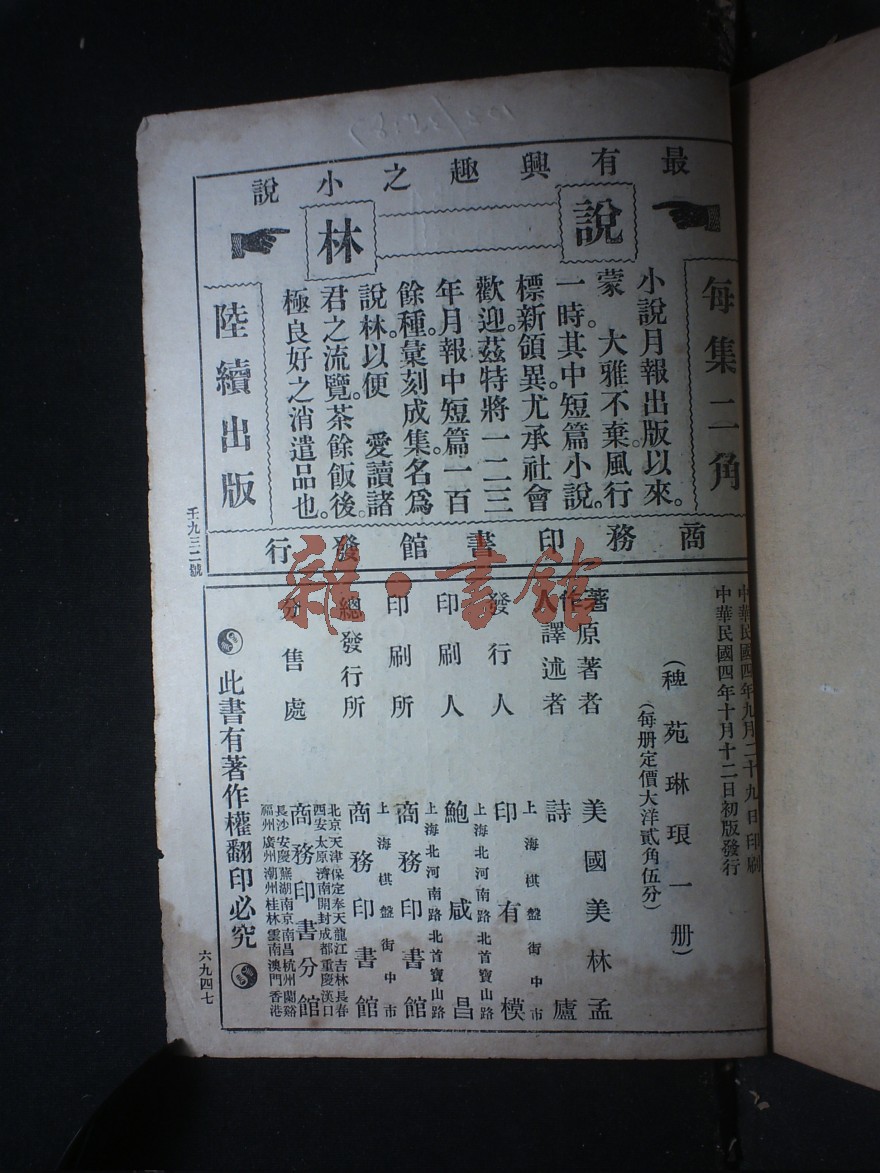 最有興趣之小說
說林
每集二角
小說月報出版以來。
蒙　大雅不棄。風行
一時。其中短篇小說。
標新領異。尤承社會
歡迎。茲特將一二三
年月報中短篇一百
餘種。彙刻成集。名爲
說林。以便　愛讀諸
君之流覽。茶餘飯後。
極良好之消遣品也。
陸續出版
商務印書館發行
壬九三二號
中華民國四年九月二十九日印刷
中華民國四年十月十二日初版發行
(稗苑琳琅一册)
(每册定價大洋貳角伍分)
著作人
原著者　美國美林孟
譯述者　詩廬
發行人　印有模
上海棋盤街中市
印刷人　鮑咸昌
上海北河南路北首寶山路
印刷所　商務印書館
上海北河南路北首寶山路
總發行所　商務印書館
上海棋盤街中市
分售處　商務印書分館
北京天津保定奉天龍江吉林長春
西安太原濟南開封成都重慶漢口
長沙安慶蕪湖南京南昌杭州蘭谿
福州廣州潮州桂林雲南澳門香港
此書有著作權翻印必究
六九四七
雜·書館